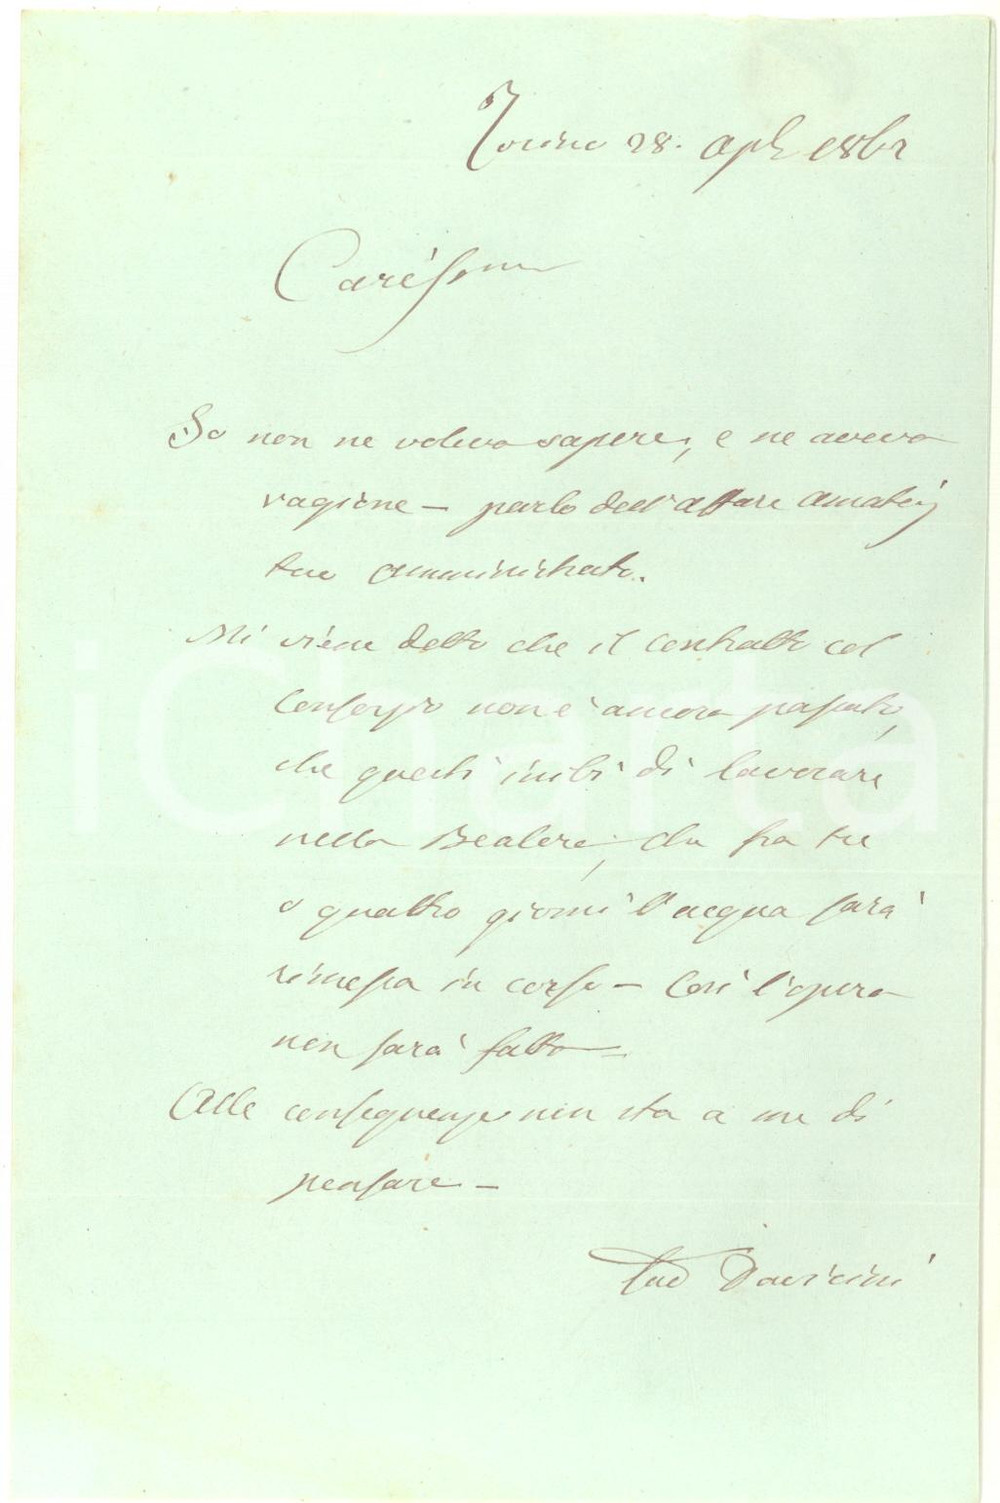 Torino 28. Aple 1862
Carissmo
Io non ne voleva sapere, e ne aveva
ragione – parlo dell'affare Amatej
tuo amministrato.
Mi viene detto che il contratto col
Consorzio non è ancora passato,
che questi inibì di lavorare
nella Bealera, che fra tre
o quattro giorni l'acqua sarà
rimessa in corso – Così l'opera
non sarà fatta –
Alle conseguenze non sta a me di
pensare –
Tuo Davicini
iCharta